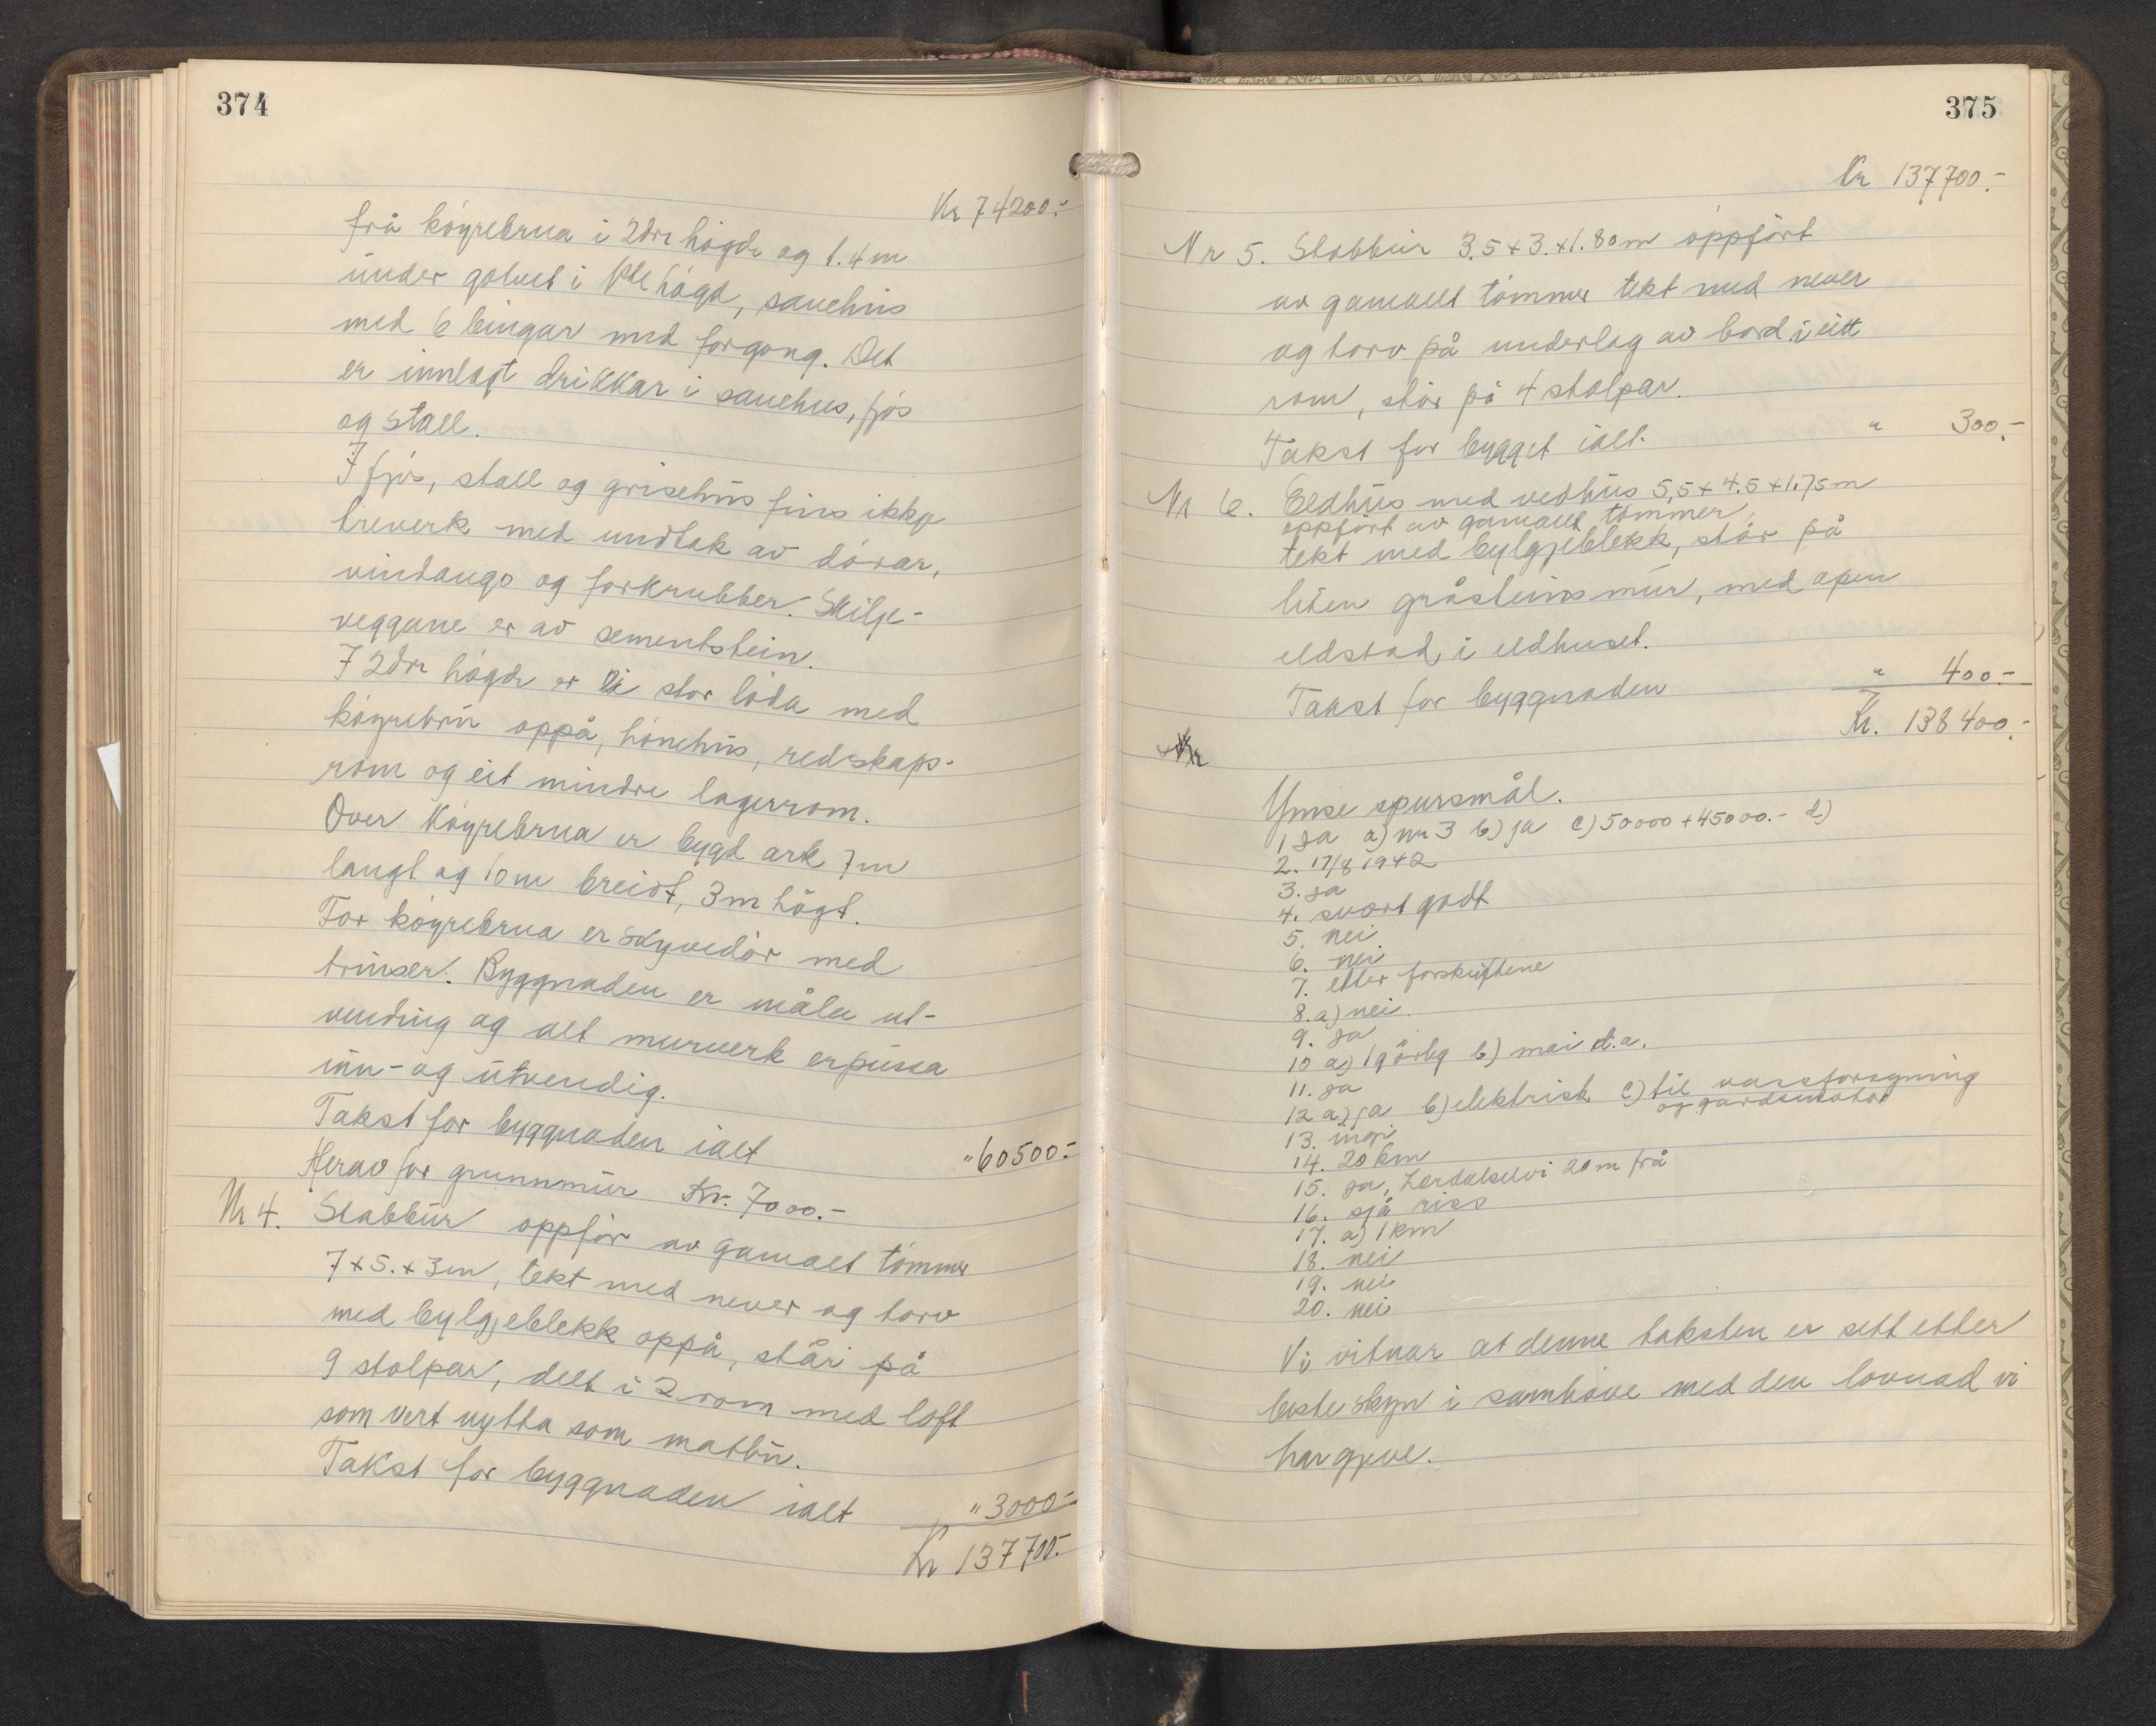 374
Kr 74200.-
frå köyrebrua i 2dre högde og 1.4m
under golvet i 1ste högd, sauehus
med 6 bingar med forgong. Det
er innlagt drikkar i sauehus, fjös
og stall.
I fjös, stall og grisehus fins ikkje
treverk med undtak av dörar,
vindaugo og forkrubber. Skilje-
veggane er av sementstein.
I 2dre högde er ei stor löda med
köyrebru oppå, hönehus, redskaps-
rom og eit mindre lagerrom.
Over Köyrebrua er bygd ark 7m
langt og 10m breidt, 3m högt.
For köyrebrua er skyvedör med
trinser. Byggnaden er måla ut-
vending og alt murverk er pussa
inn- og utvendig.
Takst for byggnaden ialt "60500.-
Herav for grunnmur Kr. 7000.-
Nr 4. Stabbur oppför av gamalt tömmer
7+5.+3m, tekt med never og torv
med bylgjeblekk oppå, står på
9 stolpar, delt i 2 rom med loft
som vert nytta som matbu.
Takst for byggnaden ialt "3000.-
Kr 137700.-
375
Kr 137700.-
Nr 5. Stabbur 3.5+3.+1.80m oppfört
av gamalt tömmer tekt med never
og torv på underlag av bord i eitt
rom, står på 4 stolpar.
Takst for bygget ialt. " 300.-
Nr 6. Eldhus med vedhus 5,5+4.5+1.75m
oppfört av gamalt tömmer,
tekt med bylgjeblekk, står på
liten gråsteinsmur, med open
eldstad, i eldhuset.
Takst for byggnaden " 400.-
Kr. 138400.-
Nr
Ymse spursmål.
1 ja a) nr 3 b) ja c) 50000+45000.- d)
2. 17/8 1942
3. ja
4. svært godt
5. nei
6. nei
7. etter forskriftene
8. a) nei.
9. ja
10 a) 1 görleg b) mai d.a.
11. ja
12 a) ja b) elektrisk c) til vassforsyning
og gardsmotor
13. ingi
14. 20 km
15. ja, Lærdalselvi 20m frå
16. sjå riss
17. a) 1 km
18. nei
19. nei
20. nei
Vi vitnar at denne taksten er sett etter
beste skyn i samhöve med den lovnad vi
har gjeve.